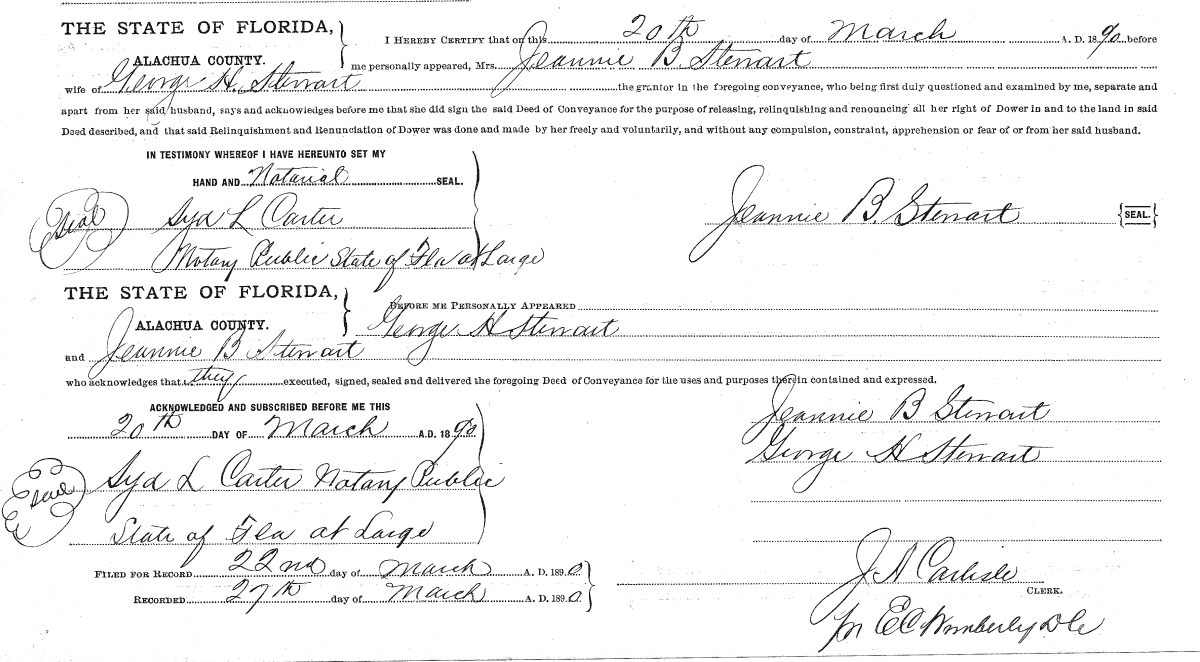 THE STATE OF FLORIDA,
ALACHUA COUNTY.
I HEREBY CERTIFY that on this 20th day of March A. D. 1890 before
me personally appeared, Mrs. Jeannie B. Stewart
wife of George H. Stewart the grantor in the foregoing conveyance, who being first duly questioned and examined by me, separate and
apart from her said husband, says and acknowledges before me that she did sign the said Deed of Conveyance for the purpose of releasing, relinquishing and renouncing all her right of Dower in and to the land in said
Deed described, and that said Relinquishment and Renunciation of Dower was done and made by her freely and voluntarily, and without any compulsion, constraint, apprehension or fear of or from her said husband.
IN TESTIMONY WHEREOF I HAVE HEREUNTO SET MY
HAND AND Notarial SEAL.
Seal Syd L Carter
Jeannie B. Stewart {SEAL.}
Notary Public State of Fla at Large
THE STATE OF FLORIDA,
ALACHUA COUNTY.
BEFORE ME PERSONALLY APPEARED
George H Stewart
and Jeannie B Stewart
who acknowledges that they executed, signed, sealed and delivered the foregoing Deed of Conveyance for the uses and purposes therein contained and expressed.
ACKNOWLEDGED AND SUBSCRIBED BEFORE ME THIS
20th DAY OF March A.D. 1890
Jeannie B Stewart
George H Stewart
Seal Syd L Carter Notary Public
State of Fla at Large
FILED FOR RECORD 22nd day of March A. D. 1890
RECORDED 27th day of March A. D. 1890
J A Carlisle
CLERK.
pr E C Wimberly D C